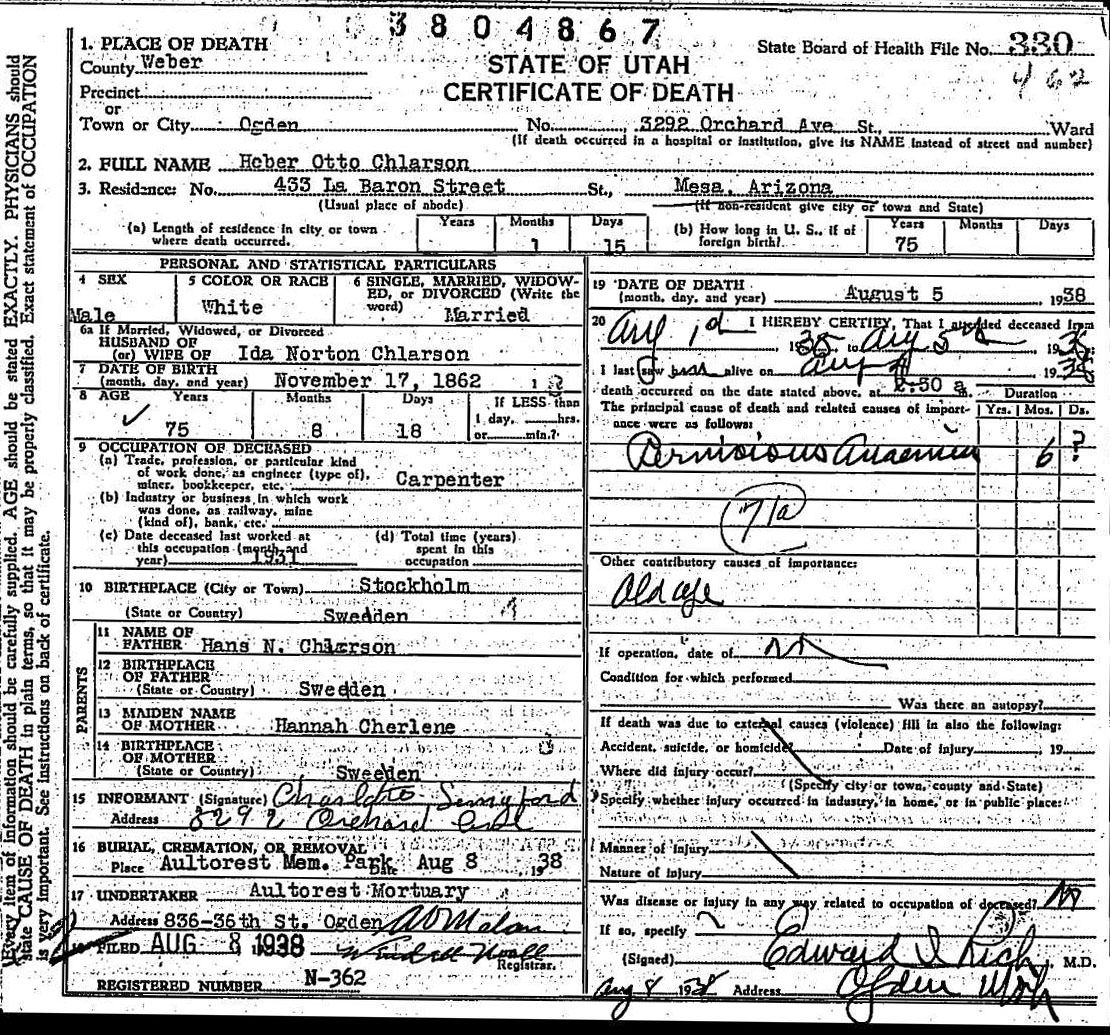 3804867
1. PLACE OF DEATH
County Weber
State Board of Health File No. 330
462
STATE OF UTAH
CERTIFICATE OF DEATH
Precinct
or
Town or City Ogden No. 3292 Orchard Ave St., Ward
(If death occurred in a hospital or institution, give its NAME instead of street and number)
2. FULL NAME Heber Otto Chlarson
3. Residence: No. 433 La Baron Street St., Mesa, Arizona
(Usual place of abode) (If non-resident give city or town and State)
(a) Length of residence in city or town where death occurred. Years Months 1 Days 15
(b) How long in U. S., if of foreign birth? Years 75 Months Days
PERSONAL AND STATISTICAL PARTICULARS
4 SEX Male
5 COLOR OR RACE White
6 SINGLE, MARRIED, WIDOWED, or DIVORCED (Write the word) Married
6a If Married, Widowed, or Divorced
HUSBAND OF
(or) WIFE OF Ida Norton Chlarson
7 DATE OF BIRTH
(month, day, and year) November 17, 1862
8 AGE Years 75 Months 8 Days 18
If LESS than
1 day, hrs.
or min.?
9 OCCUPATION OF DECEASED
(a) Trade, profession, or particular kind
of work done, as engineer (type of),
miner, bookkeeper, etc. Carpenter
(b) Industry or business in which work
was done, as railway, mine
(kind of), bank, etc.
(c) Date deceased last worked at
this occupation (month and
year) 1931
(d) Total time (years)
spent in this
occupation
10 BIRTHPLACE (City or Town) Stockholm
(State or Country) Sweden
PARENTS
11 NAME OF
FATHER Hans N. Chlarson
12 BIRTHPLACE
OF FATHER
(State or Country) Sweden
13 MAIDEN NAME
OF MOTHER Hannah Cherlene
14 BIRTHPLACE
OF MOTHER
(State or Country) Sweden
15 INFORMANT (Signature) Charlotte
Address 3292 Orchard
16 BURIAL, CREMATION, OR REMOVAL
Place Aultorest Mem. Park Date Aug 8 1938
17 UNDERTAKER Aultorest Mortuary
Address 836-36th St. Ogden
18 FILED AUG 8 1938
Registrar.
REGISTERED NUMBER N-362
19 DATE OF DEATH
(month, day, and year) August 5 1938
20 I HEREBY CERTIFY, That I attended deceased from
Aug 1st 1938 to Aug 5th 1938
I last saw him alive on Aug 1938
death occurred on the date stated above, at 2:30 a Duration
The principal cause of death and related causes of importance were as follows: Yrs. Mos. Ds.
Pernicious Anaemia 6 ?
71a
Other contributory causes of importance:
Old age
If operation, date of no
Condition for which performed
Was there an autopsy?
If death was due to external causes (violence) fill in also the following:
Accident, suicide, or homicide? Date of injury , 19
Where did injury occur?
(Specify city or town, county and State)
Specify whether injury occurred in industry, in home, or in public place:
Manner of injury
Nature of injury
Was disease or injury in any way related to occupation of deceased? No
If so, specify
(Signed) Edward I Rich, M.D.
Aug 8 1938 Address Ogden Utah
Every item of information should be carefully supplied. AGE should be stated EXACTLY. PHYSICIANS should
state CAUSE OF DEATH in plain terms, so that it may be properly classified. Exact statement of OCCUPATION
is very important. See instructions on back of certificate.